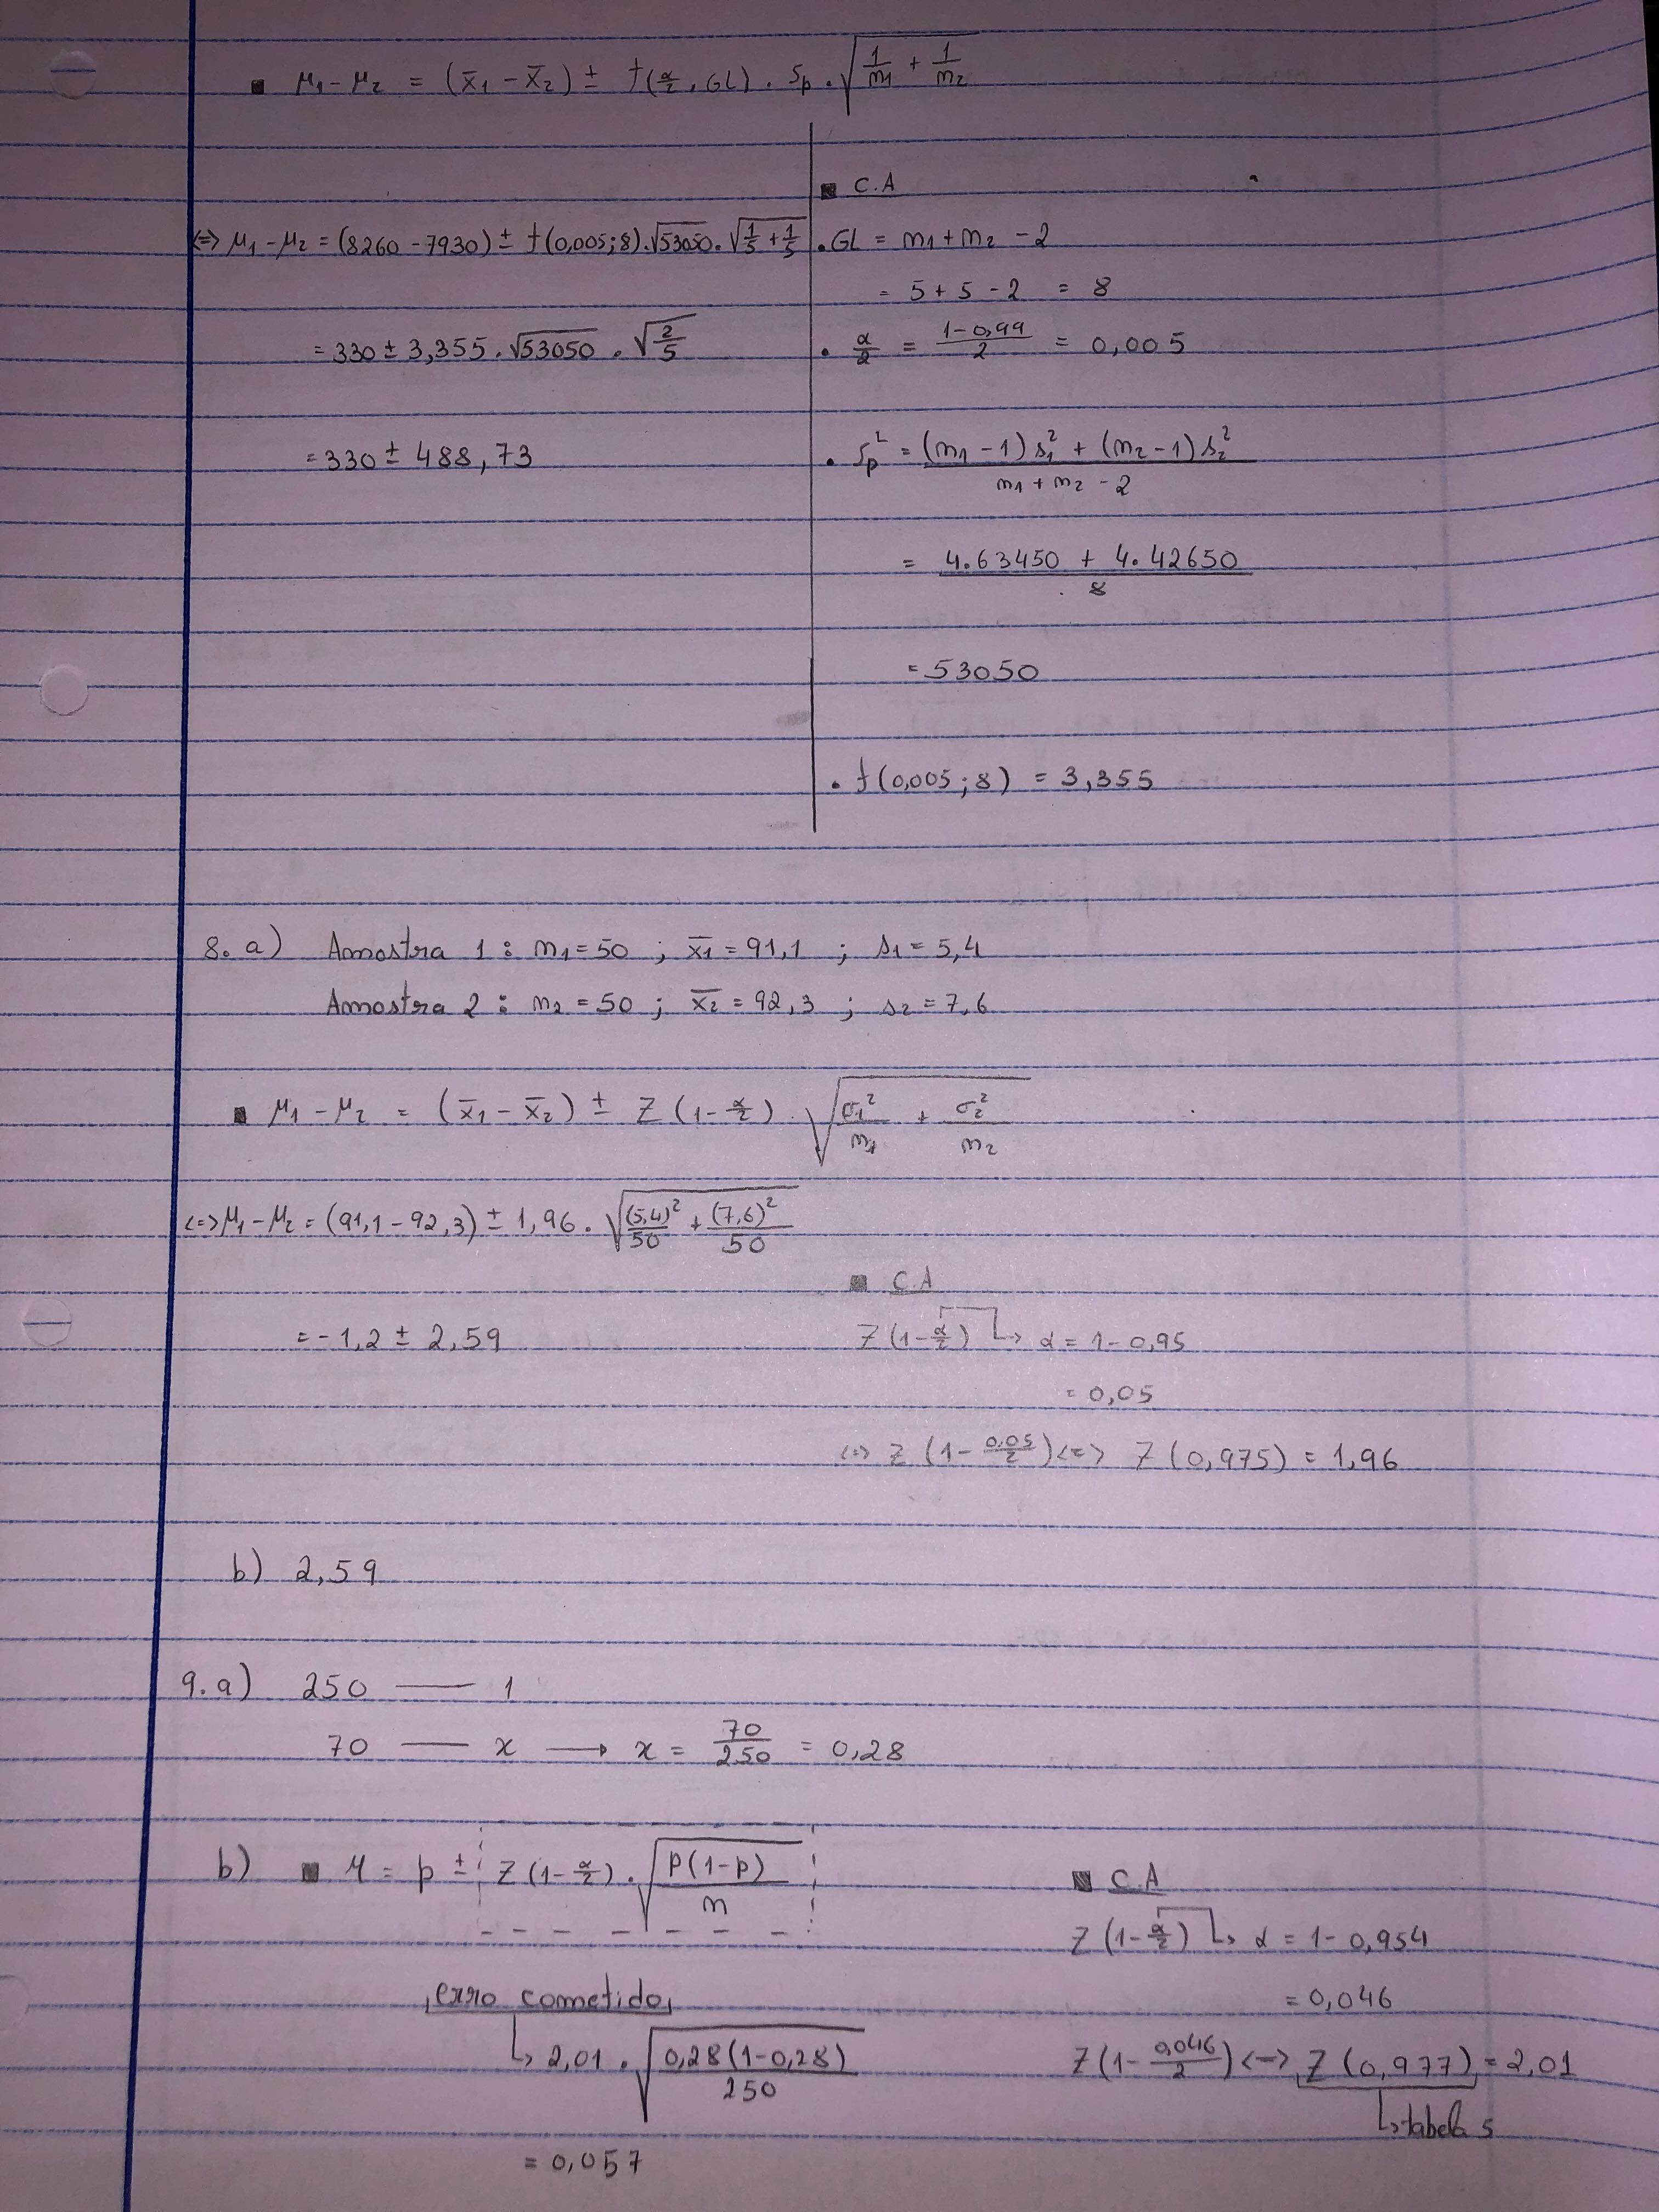 ▪ μ₁ - μ₂ = (x̄₁ - x̄₂) ± t(α/2, GL) . Sp . √(1/m₁ + 1/m₂)
▪ C.A
<=> μ₁ - μ₂ = (8260 - 7930) ± t(0,005;8) . √53050 . √(1/5 + 1/5)
. GL = m₁ + m₂ - 2
= 5 + 5 - 2 = 8
= 330 ± 3,355 . √53050 . √(2/5)
. α/2 = (1-0,99)/2 = 0,005
= 330 ± 488,73
. Sp² = ((m₁ - 1) s₁² + (m₂ - 1) s₂²)/(m₁ + m₂ - 2)
= (4.63450 + 4.42650)/8
= 53050
. t(0,005;8) = 3,355
8. a) Amostra 1 : m₁ = 50 ; x̄₁ = 91,1 ; s₁ = 5,4
Amostra 2 : m₂ = 50 ; x̄₂ = 92,3 ; s₂ = 7,6
▪ μ₁ - μ₂ = (x̄₁ - x̄₂) ± Z(1 - α/2) . √(σ₁²/m₁ + σ₂²/m₂)
<=> μ₁ - μ₂ = (91,1 - 92,3) ± 1,96 . √((5,4)²/50 + (7,6)²/50)
▪ C.A
= -1,2 ± 2,59
Z(1 - α/2) ↳ α = 1 - 0,95
= 0,05
<=> Z(1 - 0,05/2) <=> Z(0,975) = 1,96
b) 2,59
9. a) 250 — 1
70 — x → x = 70/250 = 0,28
b) ▪ μ = p ± Z(1 - α/2) . √(p(1-p)/m)
▪ C.A
Z(1 - α/2) ↳ α = 1 - 0,954
erro cometido
= 0,046
↳ 2,01 . √(0,28(1-0,28)/250)
Z(1 - 0,046/2) <=> Z(0,977) = 2,01
↳ tabela 5
= 0,057